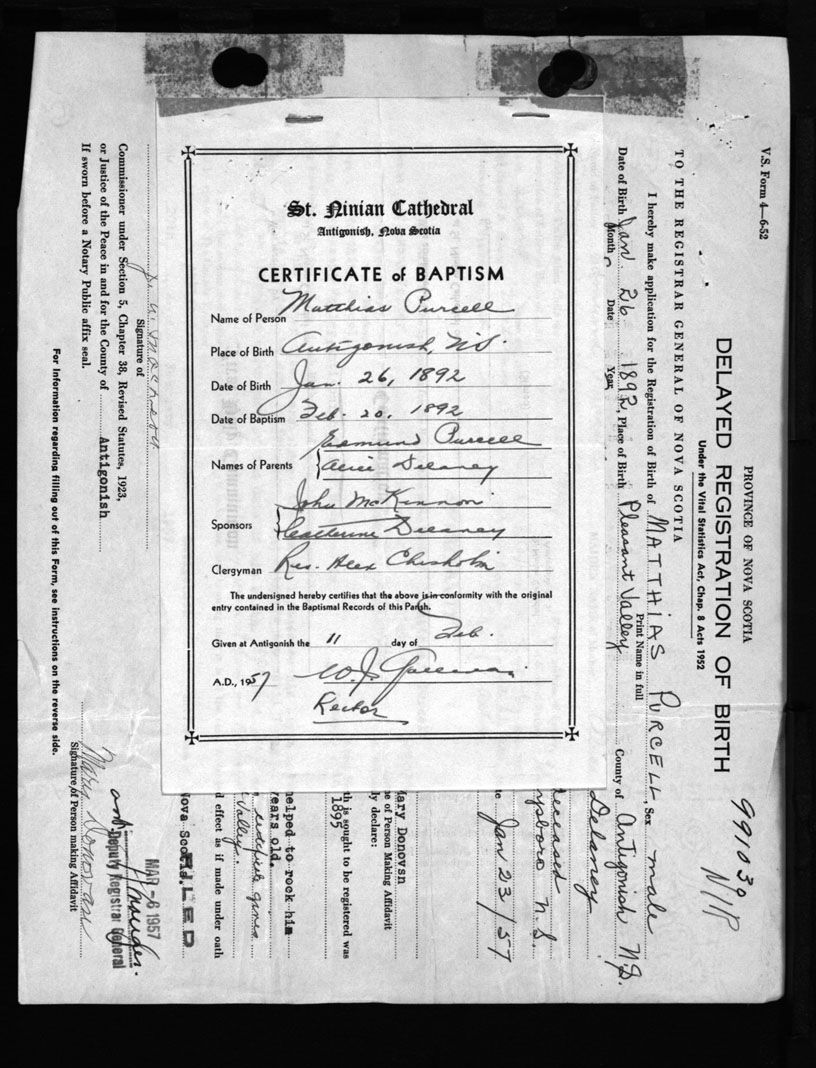 St. Ninian Cathedral
Antigonish, Nova Scotia
CERTIFICATE of BAPTISM
Name of Person Matthias Purcell
Place of Birth Antigonish, N.S.
Date of Birth Jan. 26, 1892
Date of Baptism Feb. 20, 1892
Names of Parents { Edmund Purcell
Alice Delaney
Sponsors { John McKinnon
Catherine Delaney
Clergyman Rev. Alex Chisholm
The undersigned hereby certifies that the above is in conformity with the original
entry contained in the Baptismal Records of this Parish.
Given at Antigonish the 11 day of Feb.
A.D., 1957 W. J.
Rector
V.S. Form 4—6-52
991039
N11P
PROVINCE OF NOVA SCOTIA
DELAYED REGISTRATION OF BIRTH
Under the Vital Statistics Act, Chap. 8 Acts 1952
TO THE REGISTRAR GENERAL OF NOVA SCOTIA
I hereby make application for the Registration of Birth of MATTHIAS PURCELL, Sex male
Print Name in full
Date of Birth Jan. 26 1892, Place of Birth Pleasant Valley County of Antigonish N.S.
Month Date Year
Delaney
eceased
ysboro N.S.
te Jan 23/57
Mary Donovsn
e of Person Making Affidavit
ly declare:
th is sought to be registered was
1895
helped to rock him
years old.
Valley.
d effect as if made under oath
Nova Scotia.
FILED
MAR -6 1957
Deputy Registrar General
Signature of
Commissioner under Section 5, Chapter 38, Revised Statutes, 1923,
or Justice of the Peace in and for the County of Antigonish
If sworn before a Notary Public affix seal.
Mary Donovan
Signature of Person making Affidavit
For information regarding filling out of this Form, see instructions on the reverse side.